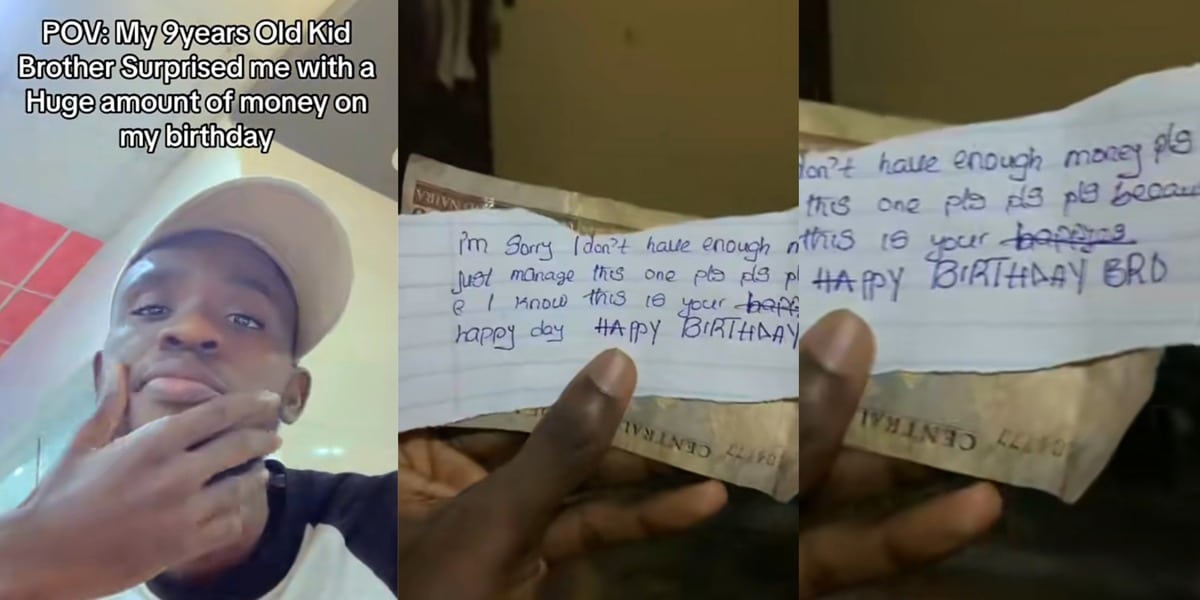 POV: My 9years Old Kid
Brother Surprised me with a
Huge amount of money on
my birthday
NAIRA
i'm Sorry I don't have enough
Just manage this one pls pls pl
e I know this is your
happy day HAPPY BIRTHDAY
CENTRAL
04777
don't have enough money pls
this one pls pls pls becau
this is your
HAPPY BIRTHDAY BRO
CENTRAL
04777